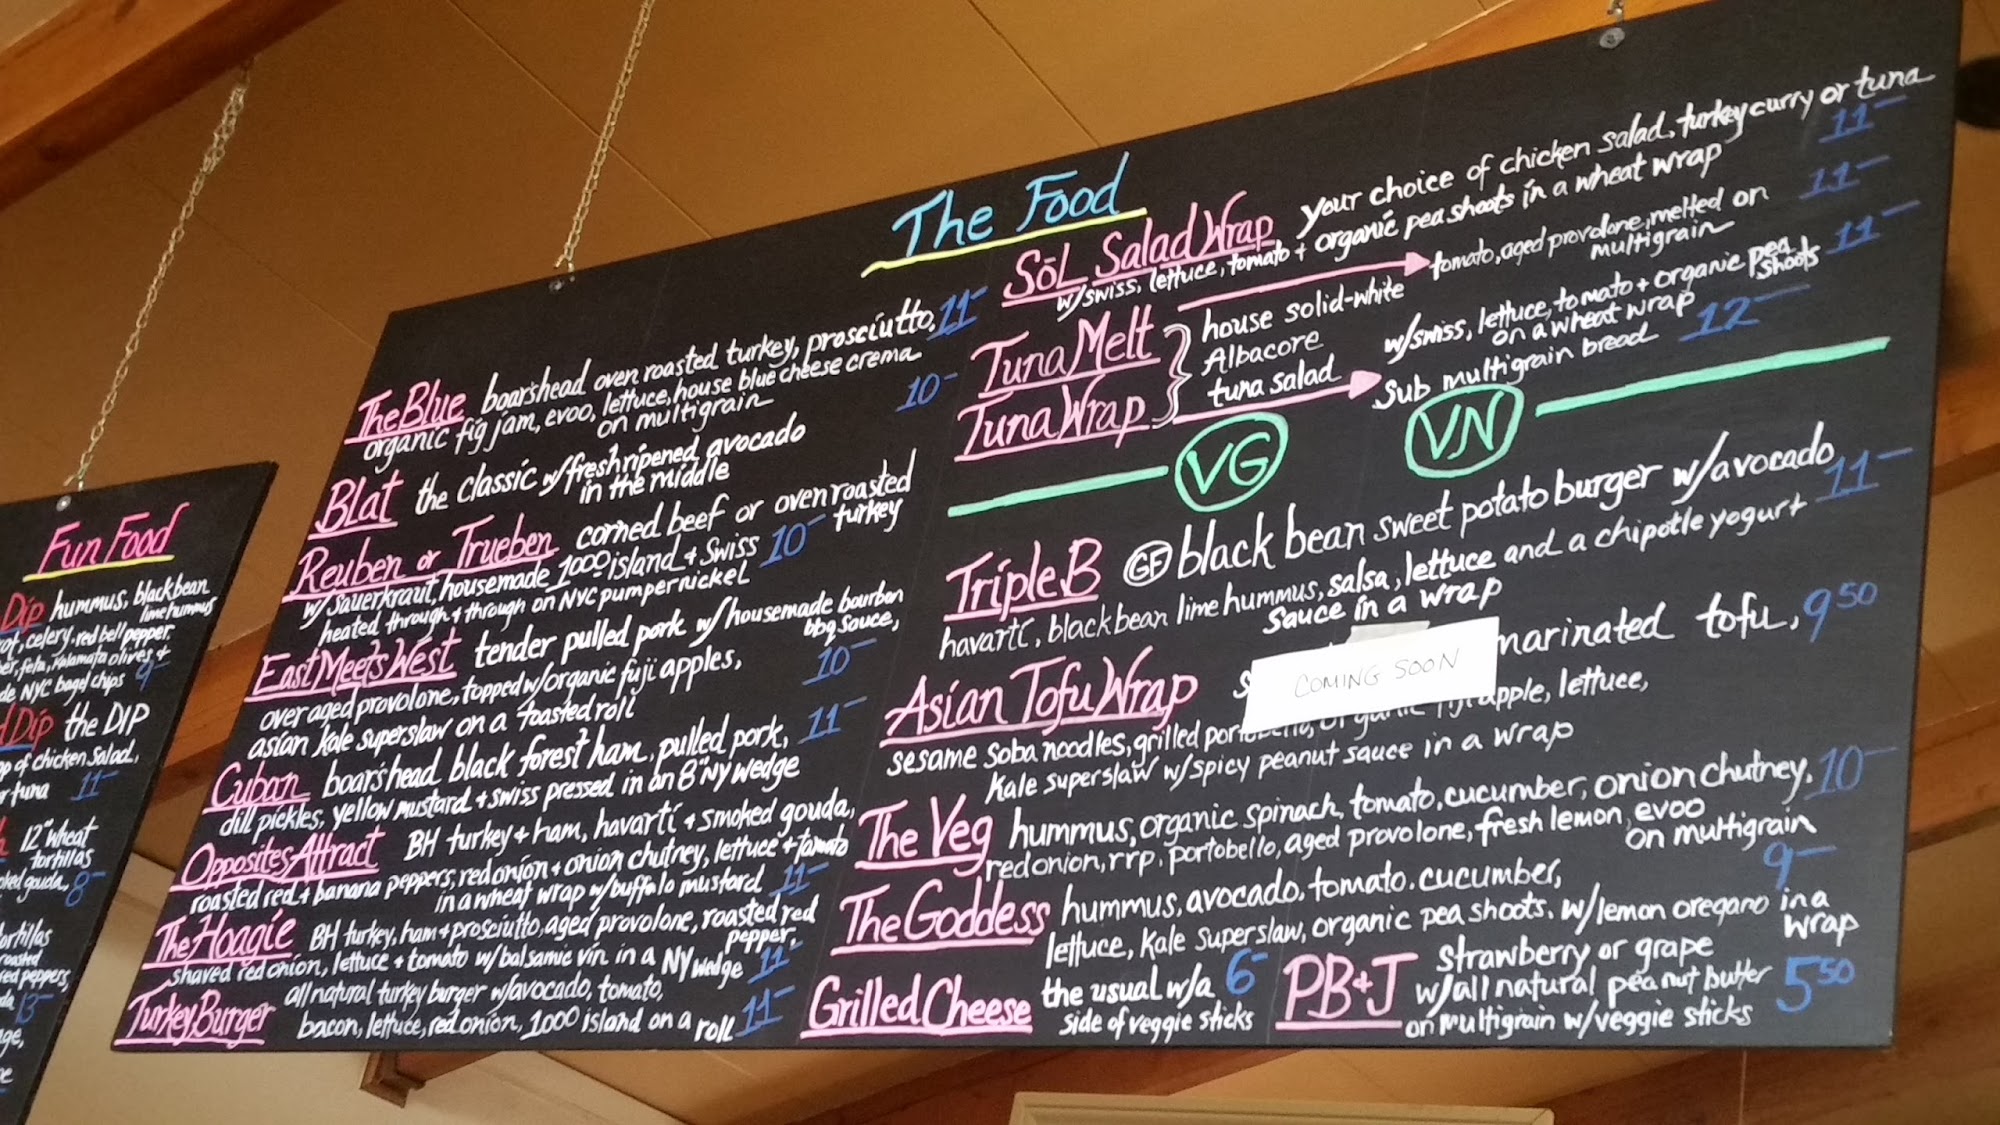 Fun Food
Dip hummus, blackbean
lime hummus
celery, red bell pepper,
feta, Kalamata olives +
NYC bagel chips 9-
Dip the DIP
of chicken salad,
tuna 11-
12" wheat
tortillas
gouda, 8-
tortillas
roasted
red peppers,
13-
The Food
The Blue boarshead oven roasted turkey, prosciutto, 11-
organic fig jam, evoo, lettuce, house blue cheese crema
on multigrain
Blat the classic w/ fresh ripened avocado 10-
in the middle
Reuben or Trueben corned beef or oven roasted
turkey
w/ sauerkraut, housemade 1000 island + Swiss 10-
heated through + through on NYC pumpernickel
East Meets West tender pulled pork w/ housemade bourbon
bbq sauce,
over aged provolone, topped w/ organic fuji apples, 10-
asian Kale superslaw on a toasted roll
Cuban boarshead black forest ham, pulled pork, 11-
dill pickles, yellow mustard + swiss pressed in an 8" NY wedge
Opposites Attract BH turkey + ham, havarti + smoked gouda,
roasted red + banana peppers, red onion + onion chutney, lettuce + tomato
in a wheat wrap w/ buffalo mustard 11-
The Hoagie BH turkey, ham + prosciutto, aged provolone, roasted red
pepper,
shaved red onion, lettuce + tomato w/ balsamic vin in a NY wedge 11-
Turkey Burger all natural turkey burger w/avocado, tomato,
bacon, lettuce, red onion, 1000 island on a roll 11-
SōL Salad Wrap your choice of chicken salad, turkey curry or tuna
w/swiss, lettuce, tomato + organic pea shoots in a wheat wrap 11-
Tuna Melt
Tuna Wrap
house solid-white
Albacore
tuna salad
tomato, aged provolone, melted on 11-
multigrain
w/swiss, lettuce, tomato + organic pea shoots 11-
on a wheat wrap
Sub multigrain bread 12-
VG VN
Triple B GF black bean sweet potato burger w/avocado, 11-
havarti, blackbean lime hummus, salsa, lettuce and a chipotle yogurt
sauce in a wrap
Asian Tofu Wrap marinated tofu, 9 50
COMING SOON
sesame soba noodles, grilled portobello, organic fuji apple, lettuce,
Kale superslaw w/spicy peanut sauce in a wrap
The Veg hummus, organic spinach, tomato, cucumber, onion chutney, 10-
red onion, rrp, portobello, aged provolone, fresh lemon, evoo
on multigrain
The Goddess hummus, avocado, tomato, cucumber, 9-
lettuce, Kale superslaw, organic pea shoots, w/lemon oregano in a
wrap
Grilled Cheese the usual w/a 6-
side of veggie sticks
PB+J strawberry or grape
w/all natural peanut butter 5 50
on multigrain w/veggie sticks